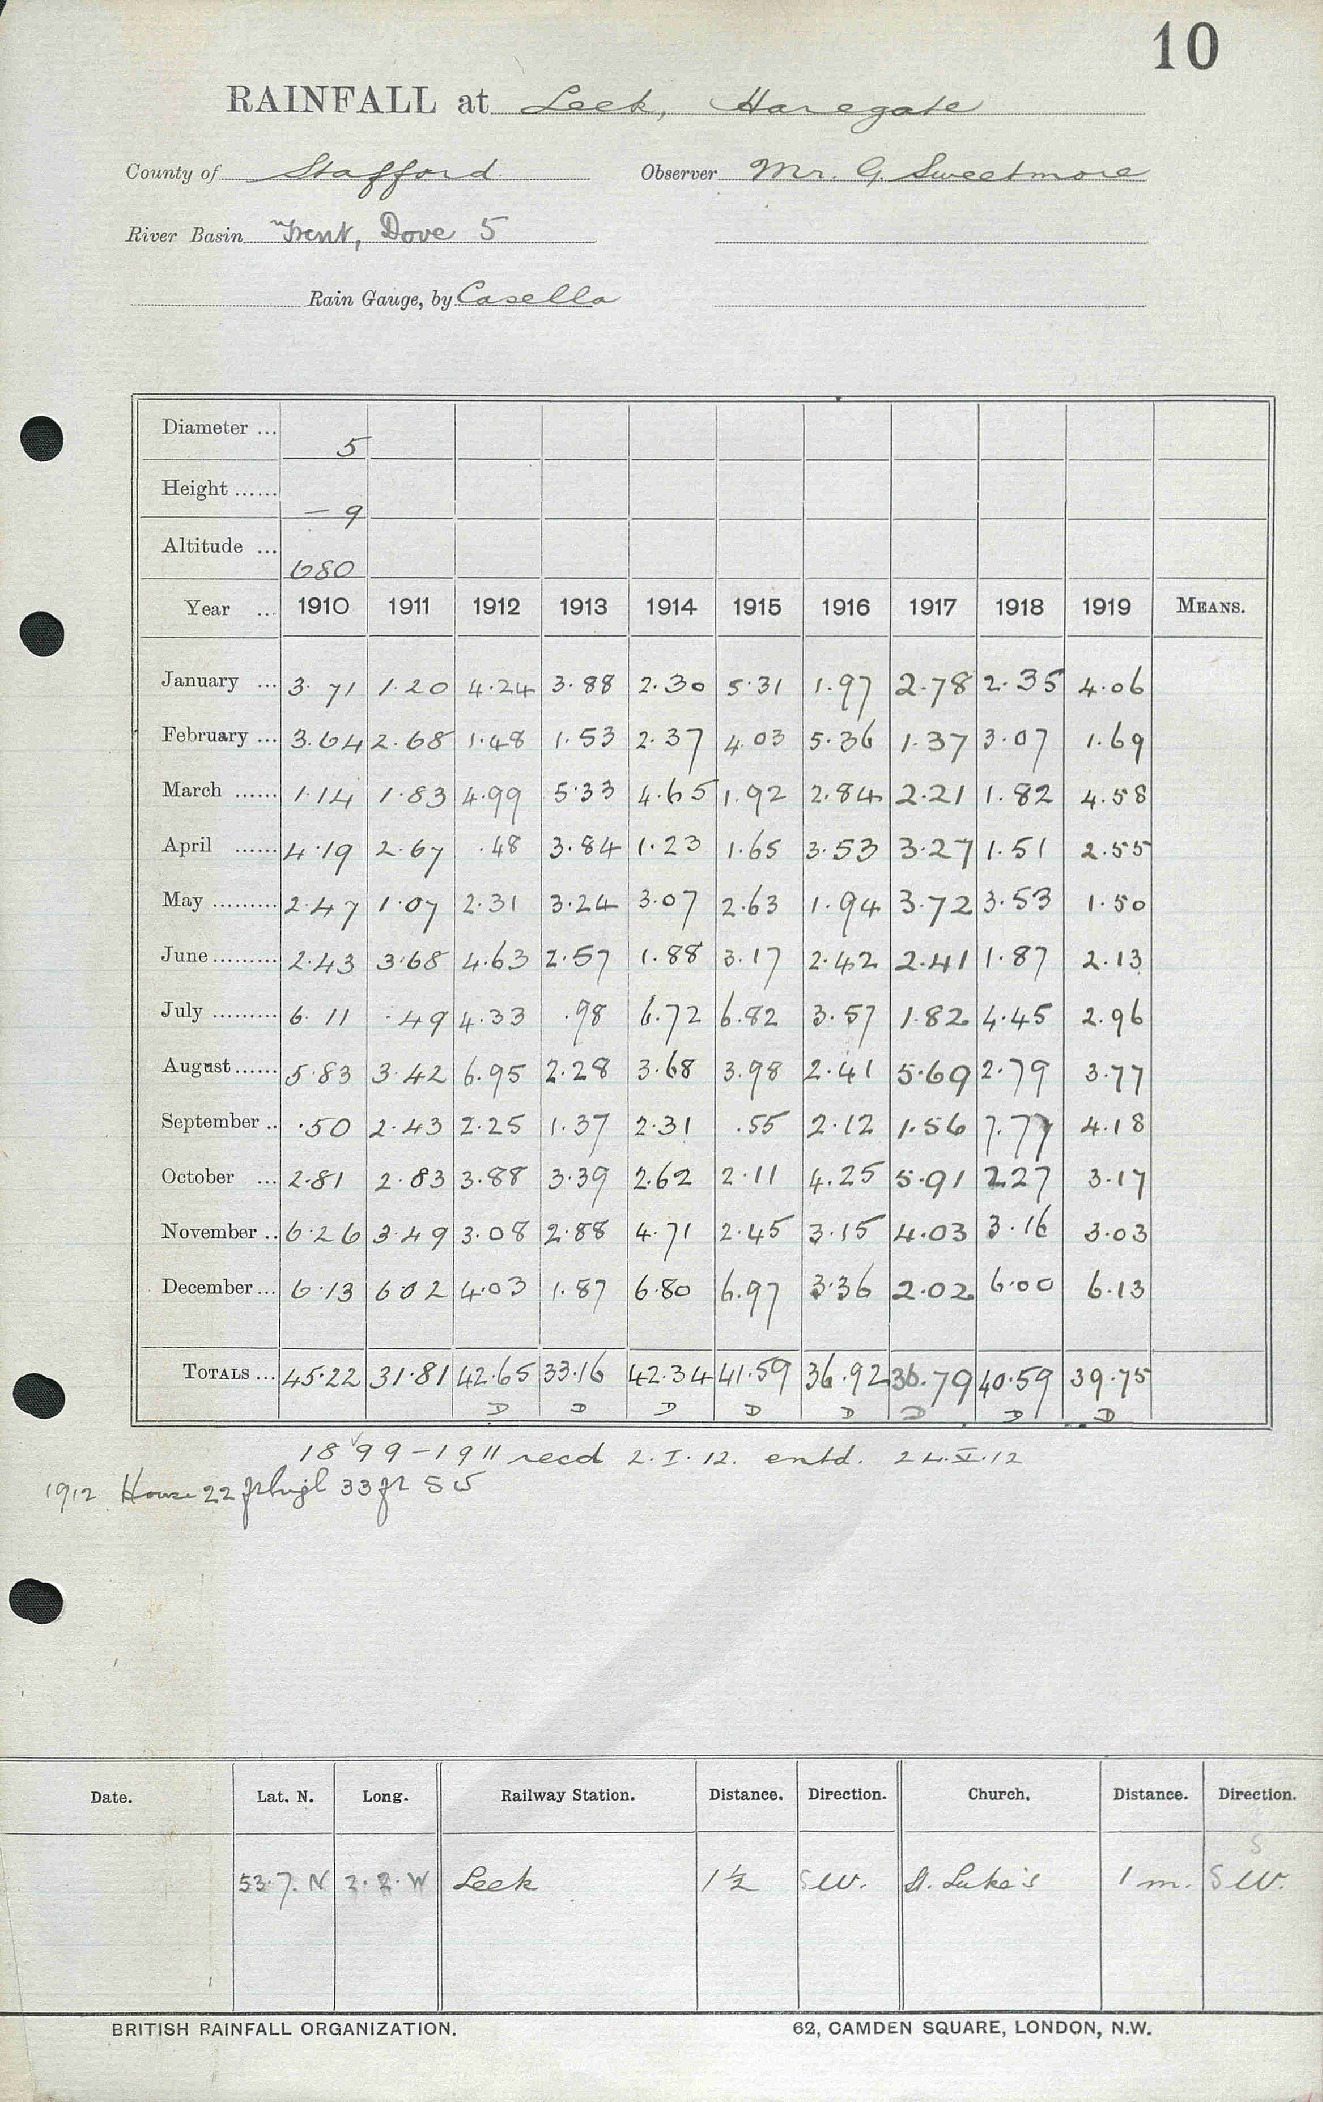 10
RAINFALL at Leek, Haregate
County of Stafford Observer Mr. G. Sweetmore
River Basin Trent, Dove 5
Rain Gauge, by Casella
Diameter ... 5
Height ...... – 9
Altitude ... 680
Year .. 1910 1911 1912 1913 1914 1915 1916 1917 1918 1919 MEANS.
January ... 3.71 1.20 4.24 3.88 2.30 5.31 1.97 2.78 2.35 4.06
February ... 3.64 2.68 1.48 1.53 2.37 4.03 5.36 1.37 3.07 1.69
March ...... 1.14 1.83 4.99 5.33 4.65 1.92 2.84 2.21 1.82 4.58
April ...... 4.19 2.67 .48 3.84 1.23 1.65 3.53 3.27 1.51 2.55
May ......... 2.47 1.07 2.31 3.24 3.07 2.63 1.94 3.72 3.53 1.50
June ......... 2.43 3.68 4.63 2.57 1.88 3.17 2.42 2.41 1.87 2.13
July ......... 6.11 .49 4.33 .98 6.72 6.82 3.57 1.82 4.45 2.96
August ...... 5.83 3.42 6.95 2.28 3.68 3.98 2.41 5.69 2.79 3.77
September .. .50 2.43 2.25 1.37 2.31 .55 2.12 1.56 7.77 4.18
October ... 2.81 2.83 3.88 3.39 2.62 2.11 4.25 5.91 2.27 3.17
November .. 6.26 3.49 3.08 2.88 4.71 2.45 3.15 4.03 3.16 3.03
December ... 6.13 6.02 4.03 1.87 6.80 6.97 3.36 2.02 6.00 6.13
TOTALS ... 45.22 31.81 42.65 33.16 42.34 41.59 36.92 36.79 40.59 39.75
D D D D D D D D
1899–1911 recd 2.I.12. entd. 24.V.12
1912 House 22 ft high 33 ft SW
Date. Lat. N. Long. Railway Station. Distance. Direction. Church. Distance. Direction.
S
53.7.N 2.2.W Leek 1½ SW. St. Luke's 1 m. SW.
BRITISH RAINFALL ORGANIZATION. 62, CAMDEN SQUARE, LONDON, N.W.